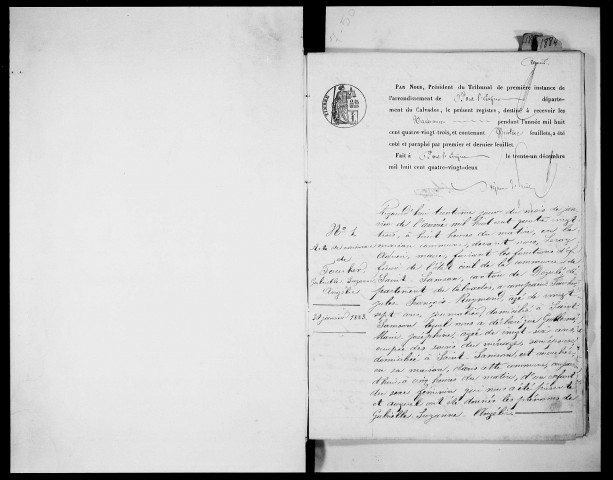 1884
PAR NOUS, Président du Tribunal de première instance de
l'arrondissement de Pont l'Evêque départe-
ment du Calvados, le présent registre, destiné à recevoir les
pendant l'année mil huit
cent quatre-vingt trois, et contenant feuillets, a été
coté et paraphé par premier et dernier feuillet.
Fait à Pont l'Evêque le trente-un décembre
mil huit cent quatre-vingt-deux
N° 1
Acte de naissance
de
Gabrielle Suzanne
Angèle
janvier 1883
Aujourd'hui jour du mois de jan
vier de l'année mil huit cent quatre vingt
trois, à huit heures du matin, en la
maison commune, devant nous, Leroy
maire, faisant les fonctions d'of
ficier de l'état civil de la commune de
Saint-Samson, canton de Dozulé dé
partement du Calvados, a comparu
Jules François Raymond, âgé de vingt
sept ans, journalier, domicilié à Saint
Samson lequel nous a déclaré que
Marie Joséphine, âgée de vingt six ans
occupée des soins du ménage, son épouse
domiciliée à Saint-Samson, est accouchée
en sa maison, dans cette commune, aujour
d'hui à cinq heures du matin, d'un enfant
du sexe féminin que nous a été présenté
et auquel ont été donnés les prénoms de
Gabrielle Suzanne Angèle